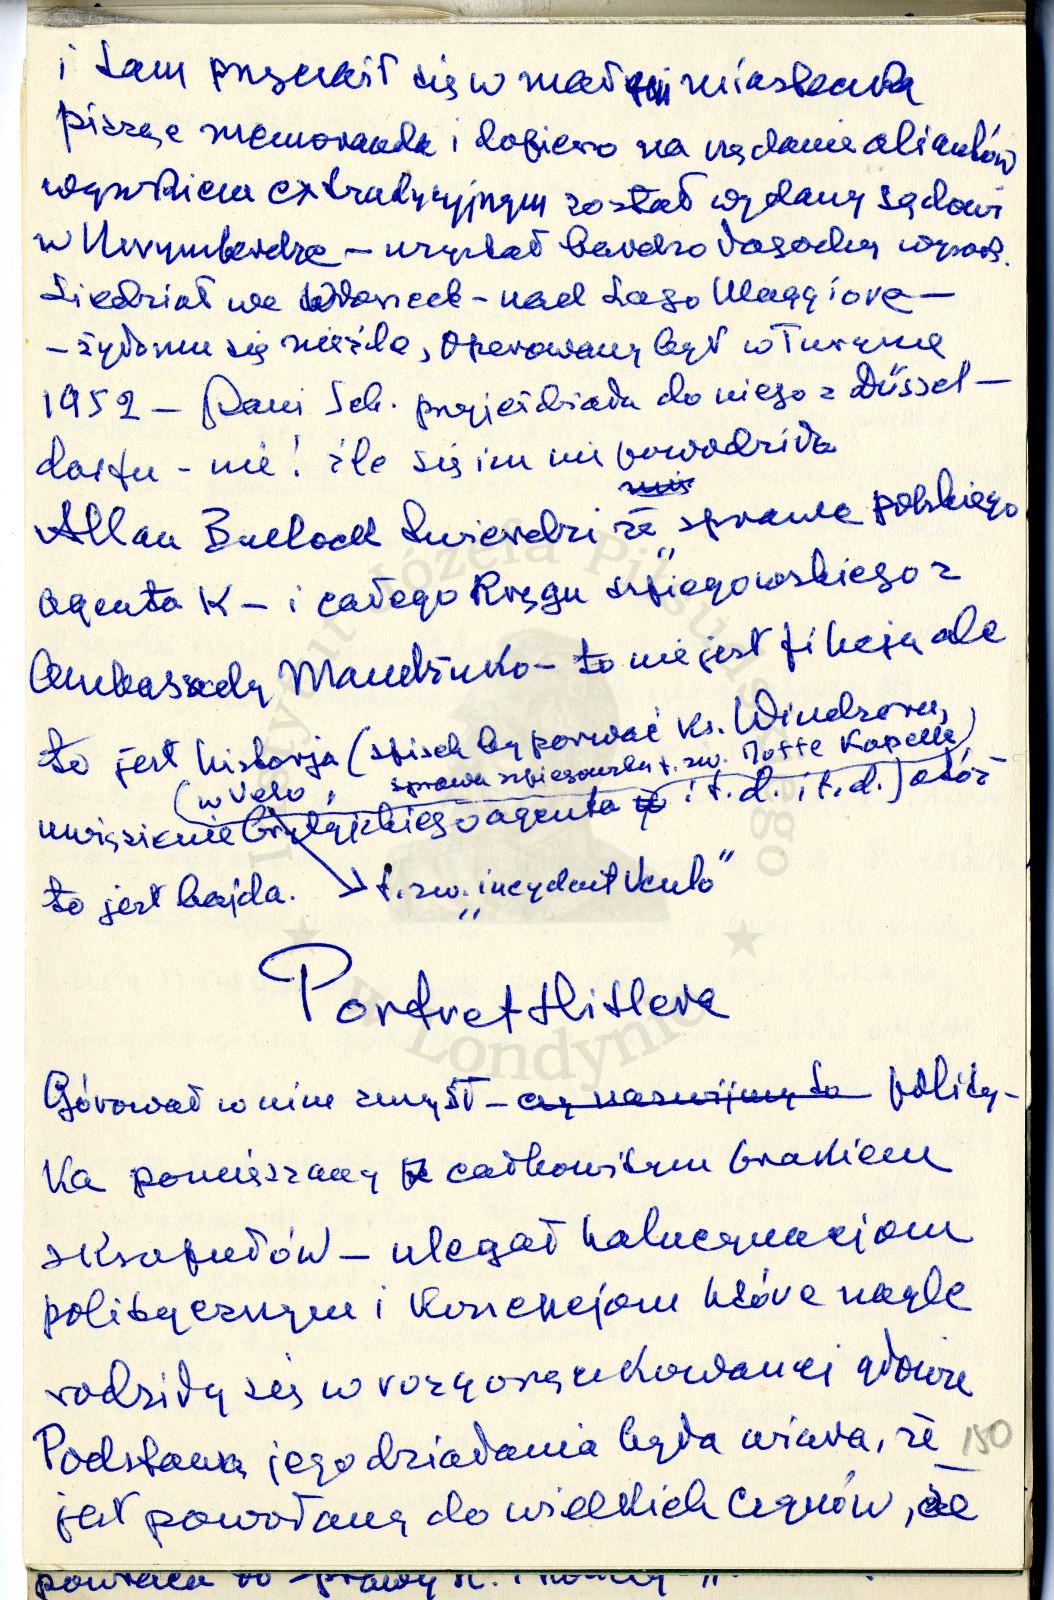 i tam przeniósł się w małym miasteczku
pisząc memoranda i dopiero na żądanie aliantów
wyrokiem extradycyjnym został wydany sądowi
w Nurymberdze – uzyskał bardzo łagodny wyrok.
Siedział we Włoszech – nad Lago Maggiore –
– żył mu się nieźle, Operowany był w Turynie
1952 – Pani Sch. przyjeżdżała do niego z Düssel –
dorfu – nie! źle się im nie powodziło
Allan Bullock twierdzi że sprawa polskiego
agenta K – i całego Kręgu szpiegowskiego z
Ambasady Mandżuko – to nie jest fikcja ale
to jest historja (spisek by porwać Ks. Windzoru,
(w Velo, sprawa szpiegowska t. zw. Rotte Kapelle)
uwięzienie brytyjskiego agenta i t.d. i t.d.) otóż
to jest bajda. → t. zw. „incydent Venlo”
Portret Hitlera
Górował w nim zmysł – czy nazwijmy to polity-
ka pomieszany z całkowitym brakiem
skrupułów – ulegał halucynacjom
politycznym i koncepcjom które nagle
rodziły się w rozgorączkowanej głowie
Podstawą jego działania była wiara, że
150
jest powołany do wielkich czynów, że
Instytut Józefa Piłsudskiego
w Londynie